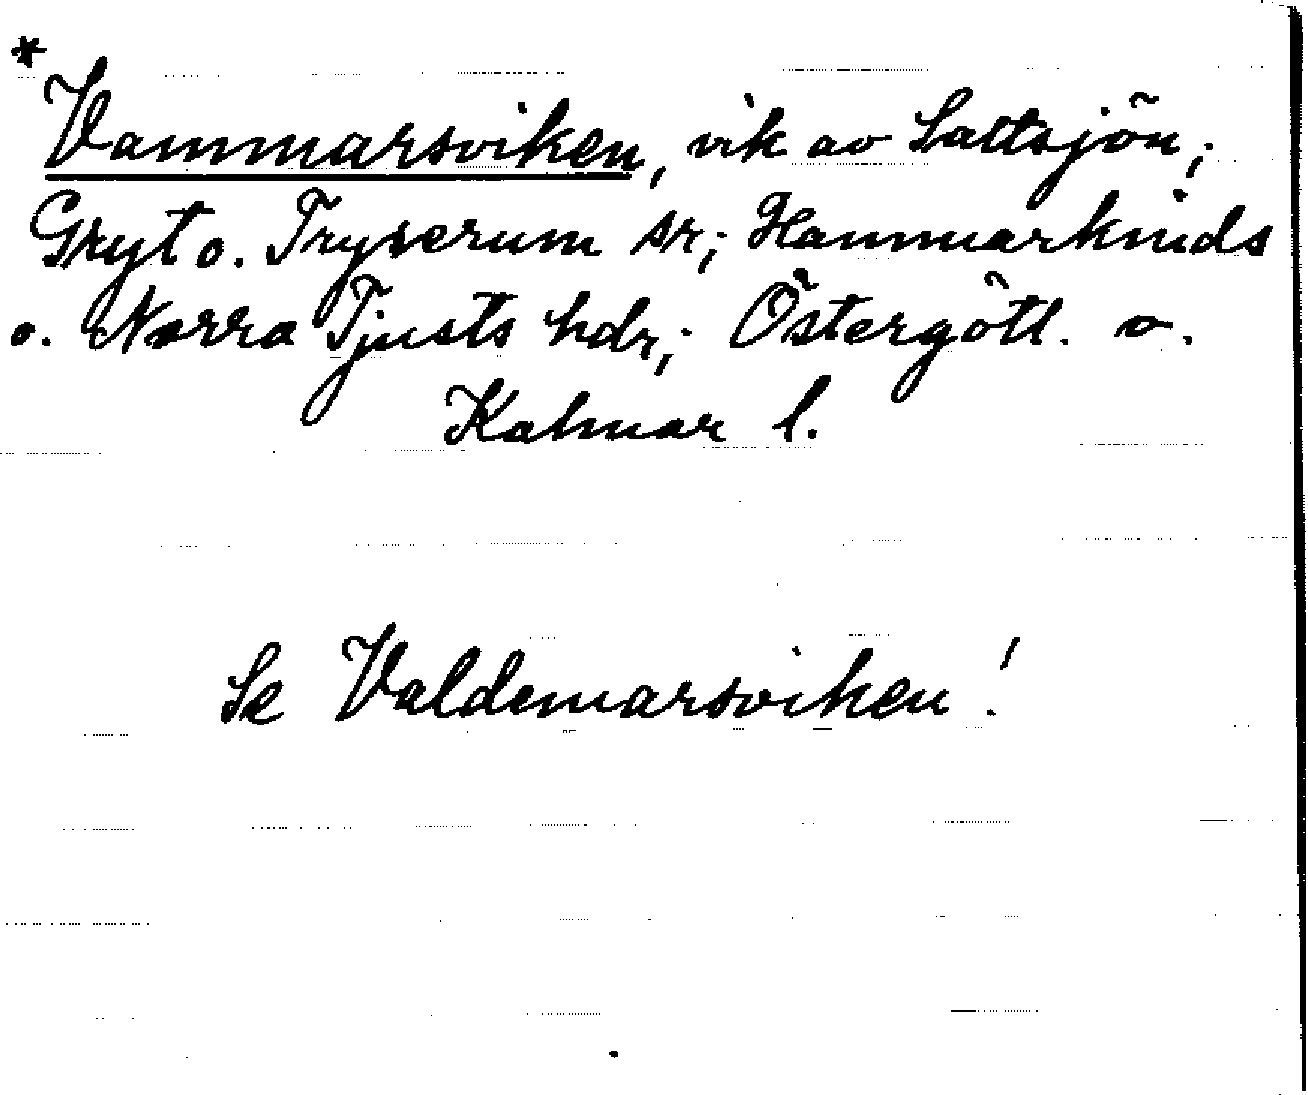 * Vammarsviken, vik av Saltsjön;
Gryt o. Tryserum sr; Hammarkinds
o. Norra Tjusts hdr; Östergötl. o.
Kalmar l.
Se Valdemarsviken!